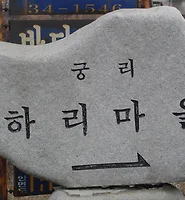 34-1546
궁 리
하 리 마 을